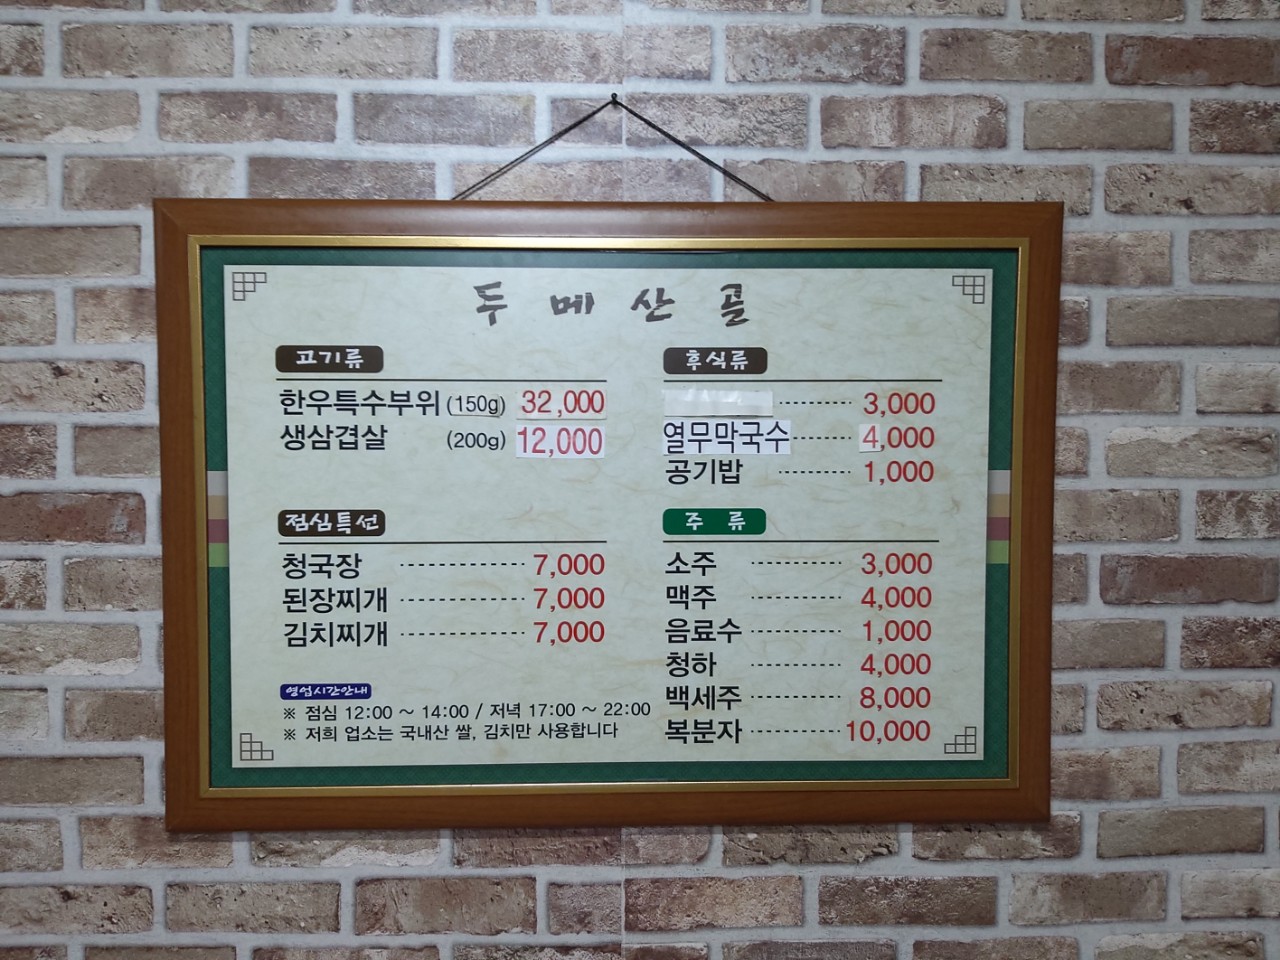 두메산골
고기류
한우특수부위 (150g) 32,000
생삼겹살 (200g) 12,000
점심특선
청국장 7,000
된장찌개 7,000
김치찌개 7,000
영업시간안내
※ 점심 12:00 ~ 14:00 / 저녁 17:00 ~ 22:00
※ 저희 업소는 국내산 쌀, 김치만 사용합니다
후식류
3,000
열무막국수 4,000
공기밥 1,000
주류
소주 3,000
맥주 4,000
음료수 1,000
청하 4,000
백세주 8,000
복분자 10,000